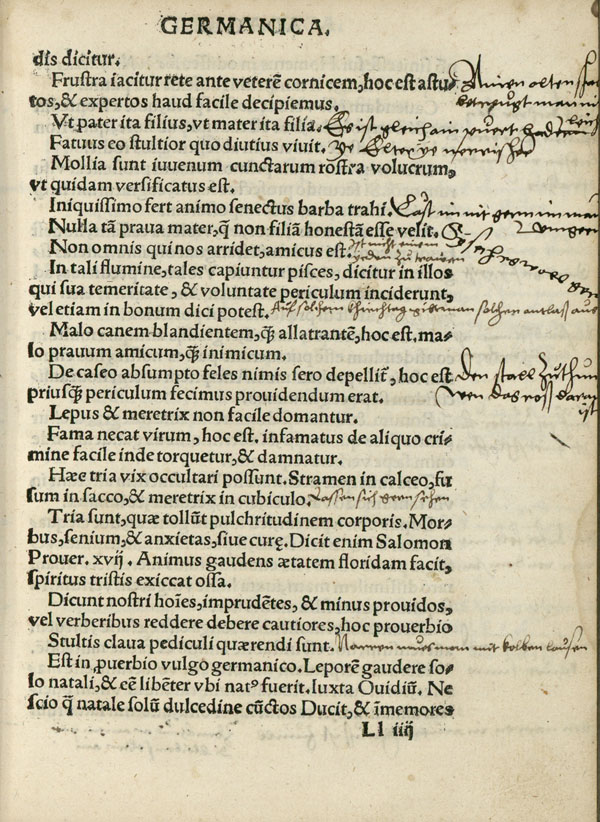 GERMANICA.
dis dicitur.
Frustra iacitur rete ante veterẽ cornicem, hoc est astu-
tos, & expertos haud facile decipiemus.
Vt pater ita filius, vt mater ita filia. Es ist gleich ain
Fatuus eo stultior quo diutius viuit. Ye Elter ye nerrischer
Mollia sunt iuuenum cunctarum rostra volucrum,
vt quidam versificatus est.
Iniquissimo fert animo senectus barba trahi. Last im nit gern
Nulla tã praua mater, q̃ non filiã honestã esse velit.
Non omnis qui nos arridet, amicus est. Ist nicht einem
yeden zu trawen
In tali flumine, tales capiuntur pisces, dicitur in illos
qui sua temeritate, & voluntate periculum inciderunt,
vel etiam in bonum dici potest. Auf solchem solchen antlas aus
Malo canem blandientem, q̃ allatrantẽ, hoc est. ma-
lo prauum amicum, q̃ inimicum.
De caseo absumpto feles nimis sero depellit᷑, hoc est den stall zuthun
priusq̃ periculum fecimus prouidendum erat. wen das ross daraus
ist
Lepus & meretrix non facile domantur.
Fama necat virum, hoc est. infamatus de aliquo cri-
mine facile inde torquetur, & damnatur.
Haec tria vix occultari possunt. Stramen in calceo, fu
sum in sacco, & meretrix in cubiculo. Lassen sich gern sehen
Tria sunt, quæ tollũt pulchritudinem corporis. Mor-
bus, senium, & anxietas, siue curę. Dicit enim Salomon
Prouer. xvij. Animus gaudens ætatem floridam facit,
spiritus tristis exiccat ossa.
Dicunt nostri hoĩes, imprudẽtes, & minus prouidos,
vel verberibus reddere debere cautiores, hoc prouerbio
Stultis claua pediculi quærendi sunt. Narren mues man mit kolben lausen
Est in ꝓuerbio vulgo germanico. Leporẽ gaudere so-
lo natali, & eẽ libẽter vbi natꝰ fuerit. Iuxta Ouidiũ. Ne
scio q̃ natale solũ dulcedine cũctos Ducit, & ĩmemores
Ll iiij